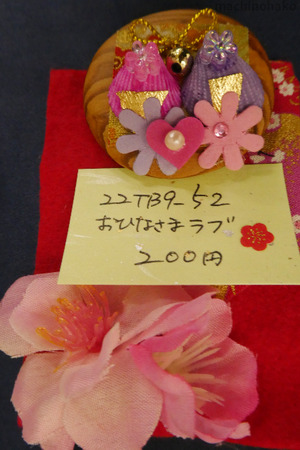 22TB9-52
おひなさまラブ
200円